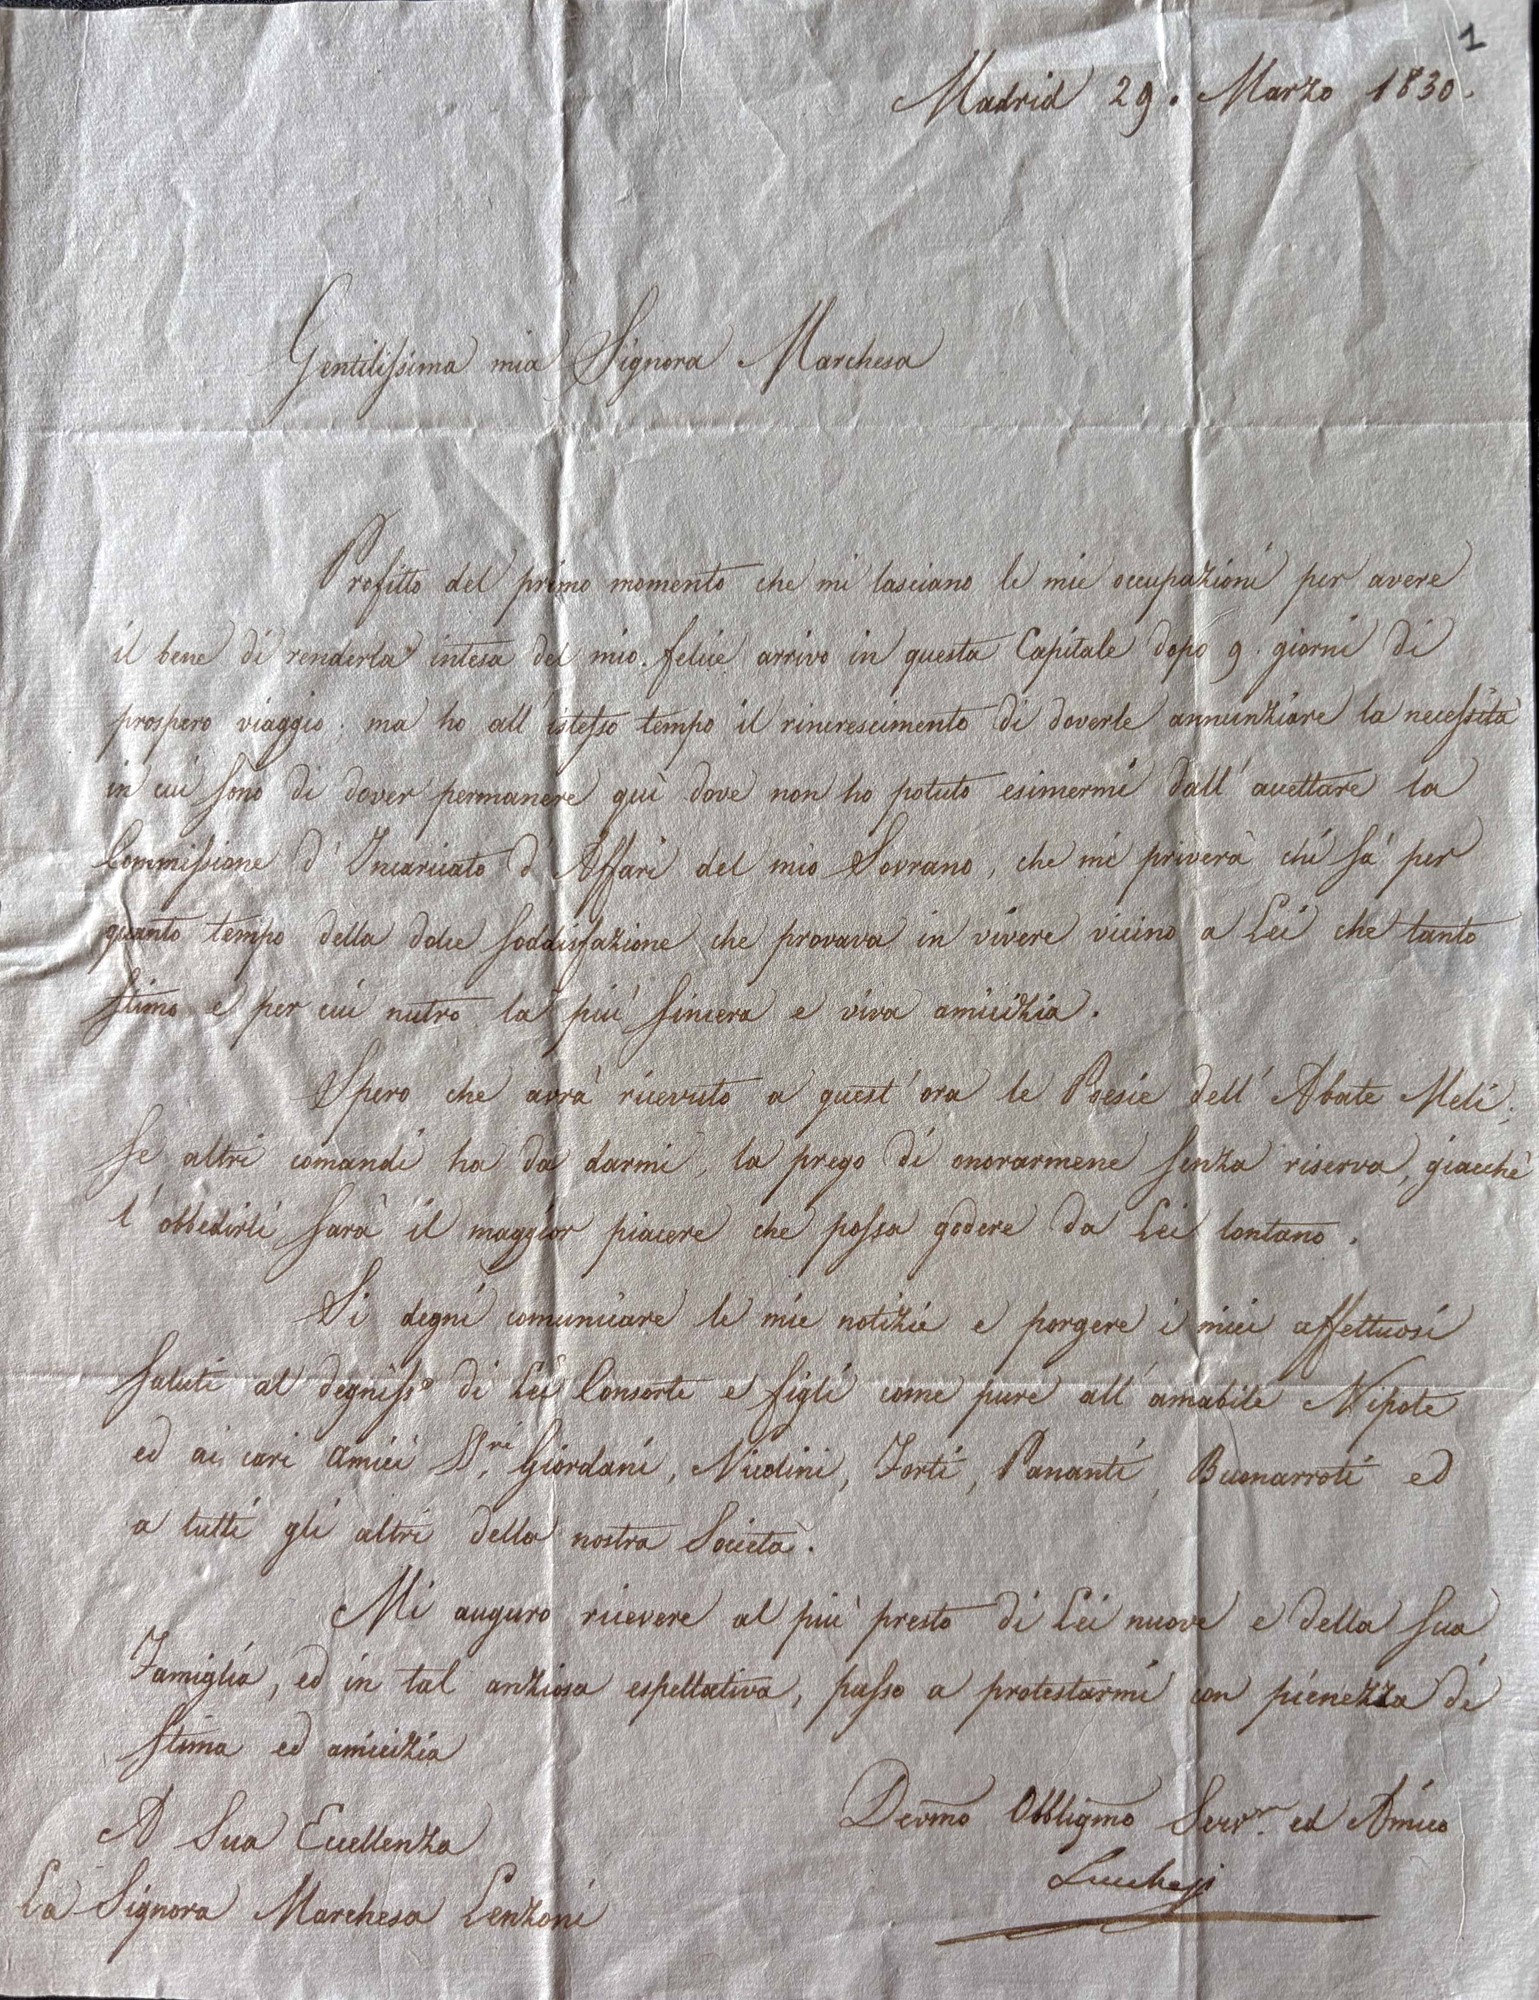 1
Madrid 29. Marzo 1830.
Gentilissima mia Signora Marchesa
Profitto del primo momento che mi lasciano le mie occupazioni per avere
il bene di renderla intesa del mio felice arrivo in questa Capitale dopo 9. giorni di
prospero viaggio. ma ho all'istesso tempo il rincrescimento di doverle annunziare la necessità
in cui sono di dover permanere quì dove non ho potuto esimermi dall'accettare la
Commissione d'Incaricato d'Affari del mio Sovrano, che mi priverà chi sà per
quanto tempo della dolce soddisfazione che provava in vivere vicino a Lei che tanto
stimo e per cui nutro la più sincera e viva amicizia.
Spero che avrà ricevuto a quest'ora le Poesie dell'Abate Meli;
se altri comandi ha da darmi, la prego di onorarmene senza riserva, giacchè
l'obbedirli sarà il maggior piacere che possa godere da Lei lontano.
Si degni comunicare le mie notizie e porgere i miei affettuosi
saluti al degniss° di Lei Consorte e figli come pure all'amabile Nipote
ed ai cari amici SS.ri Giordani, Nicolini, Forti, Pananti, Buonarroti ed
a tutti gli altri della nostra Società.
Mi auguro ricevere al più presto di Lei nuove e della sua
Famiglia, ed in tal anziosa espettativa, passo a protestarmi con pienezza di
stima ed amicizia
Devmo Obbligmo Servr. ed Amico
Lucchesi
A Sua Eccellenza
La Signora Marchesa Lenzoni